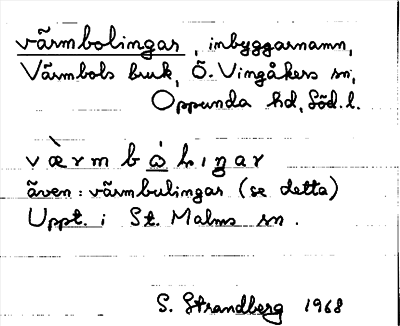 värmbolingar, inbyggarnamn,
Värmbols bruk, Ö. Vingåkers sn,
Oppunda hd, Söd. l.
även: värmbulingar (se detta)
Uppt. i St. Malms sn.
S. Strandberg 1968